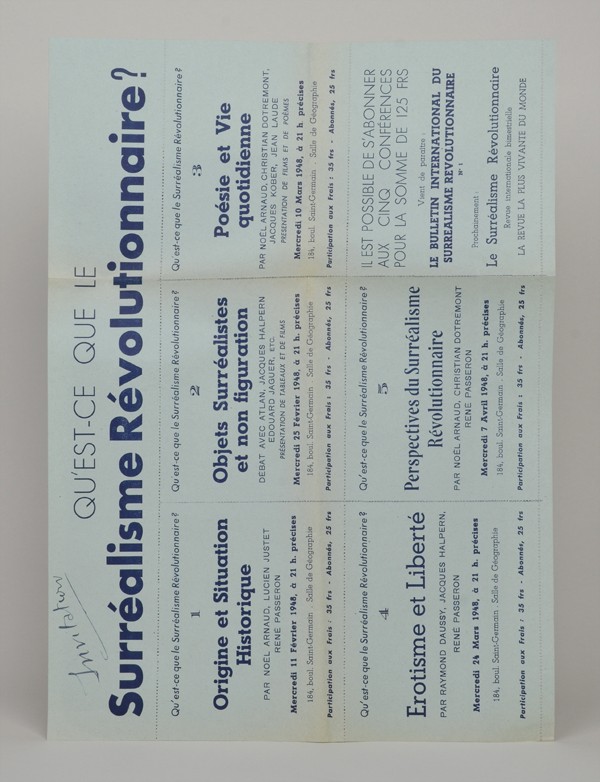 Invitation
QU'EST-CE QUE LE
Surréalisme Révolutionnaire?
Qu'est-ce que le Surréalisme Révolutionnaire?
1
Origine et Situation
Historique
PAR NOËL ARNAUD, LUCIEN JUSTET
RENÉ PASSERON
Mercredi 11 Février 1948, à 21 h. précises
184, boul. Saint-Germain - Salle de Géographie
Participation aux frais : 35 frs - Abonnés, 25 frs
Qu'est-ce que le Surréalisme Révolutionnaire?
2
Objets Surréalistes
et non figuration
DEBAT AVEC ATLAN, JACQUES HALPERN
EDOUARD JAGUER, ETC.
PRÉSENTATION DE TABLEAUX ET DE FILMS
Mercredi 25 Février 1948, à 21 h. précises
184, boul. Saint-Germain - Salle de Géographie
Participation aux frais : 35 frs - Abonnés, 25 frs
Qu'est-ce que le Surréalisme Révolutionnaire?
3
Poésie et Vie
quotidienne
PAR NOËL ARNAUD, CHRISTIAN DOTREMONT,
JACQUES KOBER, JEAN LAUDE
PRÉSENTATION DE FILMS ET DE POÈMES
Mercredi 10 Mars 1948, à 21 h. précises
184, boul. Saint-Germain - Salle de Géographie
Participation aux frais : 35 frs - Abonnés, 25 frs
Qu'est-ce que le Surréalisme Révolutionnaire?
4
Erotisme et Liberté
PAR RAYMOND DAUSSY, JACQUES HALPERN,
RENÉ PASSERON
Mercredi 24 Mars 1948, à 21 h. précises
184, boul. Saint-Germain - Salle de Géographie
Participation aux frais : 35 frs - Abonnés, 25 frs
Qu'est-ce que le Surréalisme Révolutionnaire?
5
Perspectives du Surréalisme
Révolutionnaire
PAR NOËL ARNAUD, CHRISTIAN DOTREMONT
RENÉ PASSERON
Mercredi 7 Avril 1948, à 21 h. précises
184, boul. Saint-Germain - Salle de Géographie
Participation aux frais : 35 frs - Abonnés, 25 frs
IL EST POSSIBLE DE S'ABONNER
AUX CINQ CONFÉRENCES
POUR LA SOMME DE 125 FRS
Vient de paraître :
LE BULLETIN INTERNATIONAL DU
SURRÉALISME RÉVOLUTIONNAIRE
N° 1
Prochainement :
Le Surréalisme Révolutionnaire
Revue internationale bimestrielle
LA REVUE LA PLUS VIVANTE DU MONDE